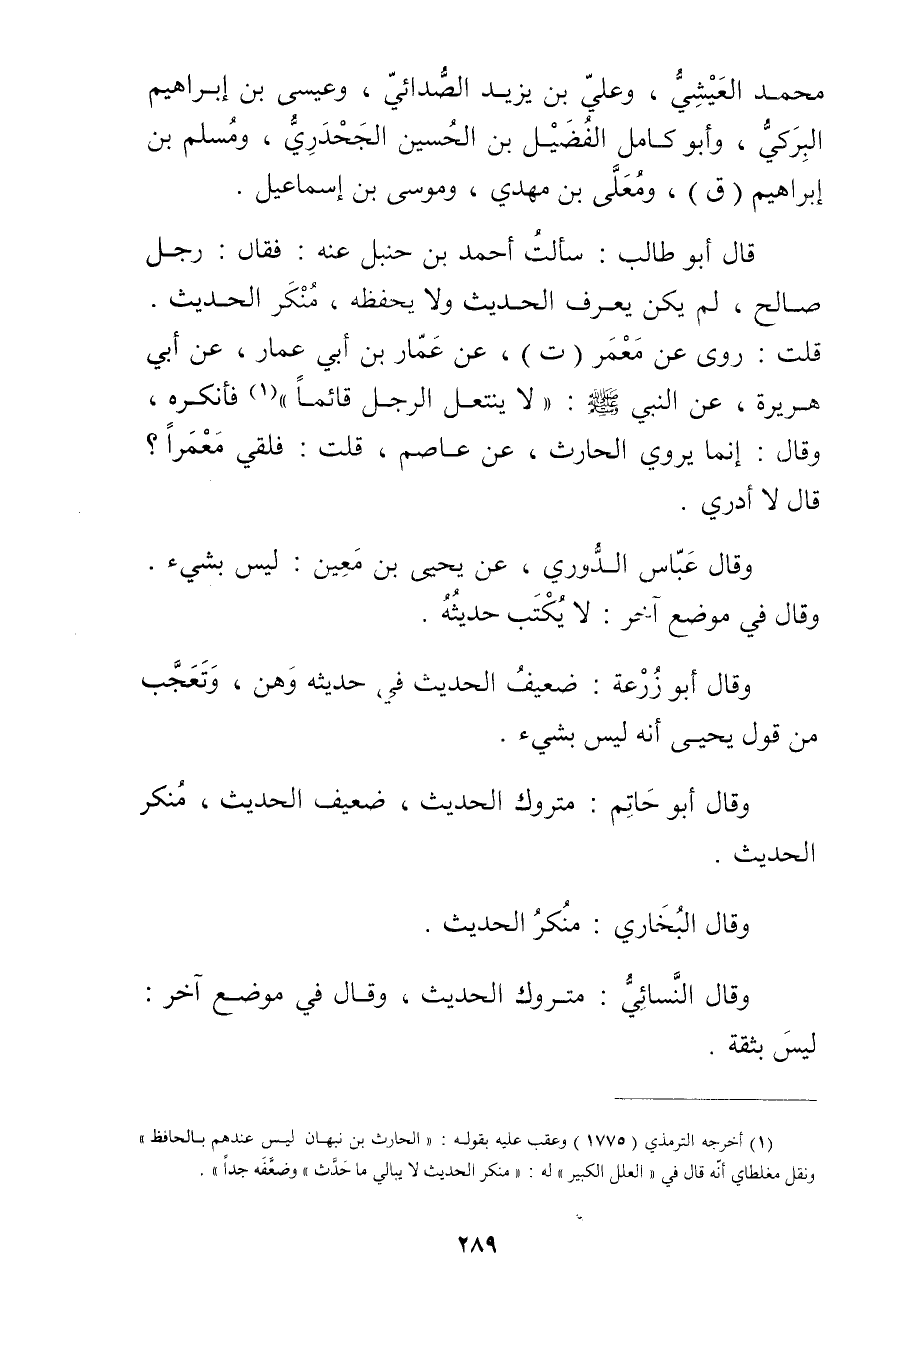 محمد العَيْشِيُّ ، وعليّ بن يزيد الصُّدائيّ ، وعيسى بن إبراهيم
البِرَكيُّ ، وأبو كامل الفُضَيْل بن الحُسين الجَحْدَرِيُّ ، ومُسلم بن
إبراهيم ( ق ) ، ومُعَلَّى بن مهدي ، وموسى بن إسماعيل .
قال أبو طالب : سألتُ أحمد بن حنبل عنه : فقال : رجل
صالح ، لم يكن يعرف الحديث ولا يحفظه ، مُنْكَر الحديث .
قلت : روى عن مَعْمَر ( ت ) ، عن عَمّار بن أبي عمار ، عن أبي
هريرة ، عن النبي ﷺ : « لا ينتعل الرجل قائماً »(١) فأنكره ،
وقال : إنما يروي الحارث ، عن عاصم ، قلت : فلقي مَعْمَراً ؟
قال لا أدري .
وقال عَبّاس الدُّوري ، عن يحيى بن مَعِين : ليس بشيء .
وقال في موضع آخر : لا يُكْتَب حديثُهُ .
وقال أبو زُرْعة : ضعيفُ الحديث في حديثه وَهن ، وَتَعَجَّب
من قول يحيى أنه ليس بشيء .
وقال أبو حَاتِم : متروك الحديث ، ضعيف الحديث ، مُنكر
الحديث .
وقال البُخَاري : منُكرُ الحديث .
وقال النَّسائِيُّ : متروك الحديث ، وقال في موضع آخر :
ليسَ بثقة .
(١) أخرجه الترمذي ( ١٧٧٥ ) وعقب عليه بقوله : « الحارث بن نبهان ليس عندهم بالحافظ »
ونقل مغلطاي أنّه قال في « العلل الكبير » له : « منكر الحديث لا يبالي ما حَدَّث » وضعَّفَه جداً » .
٢٨٩